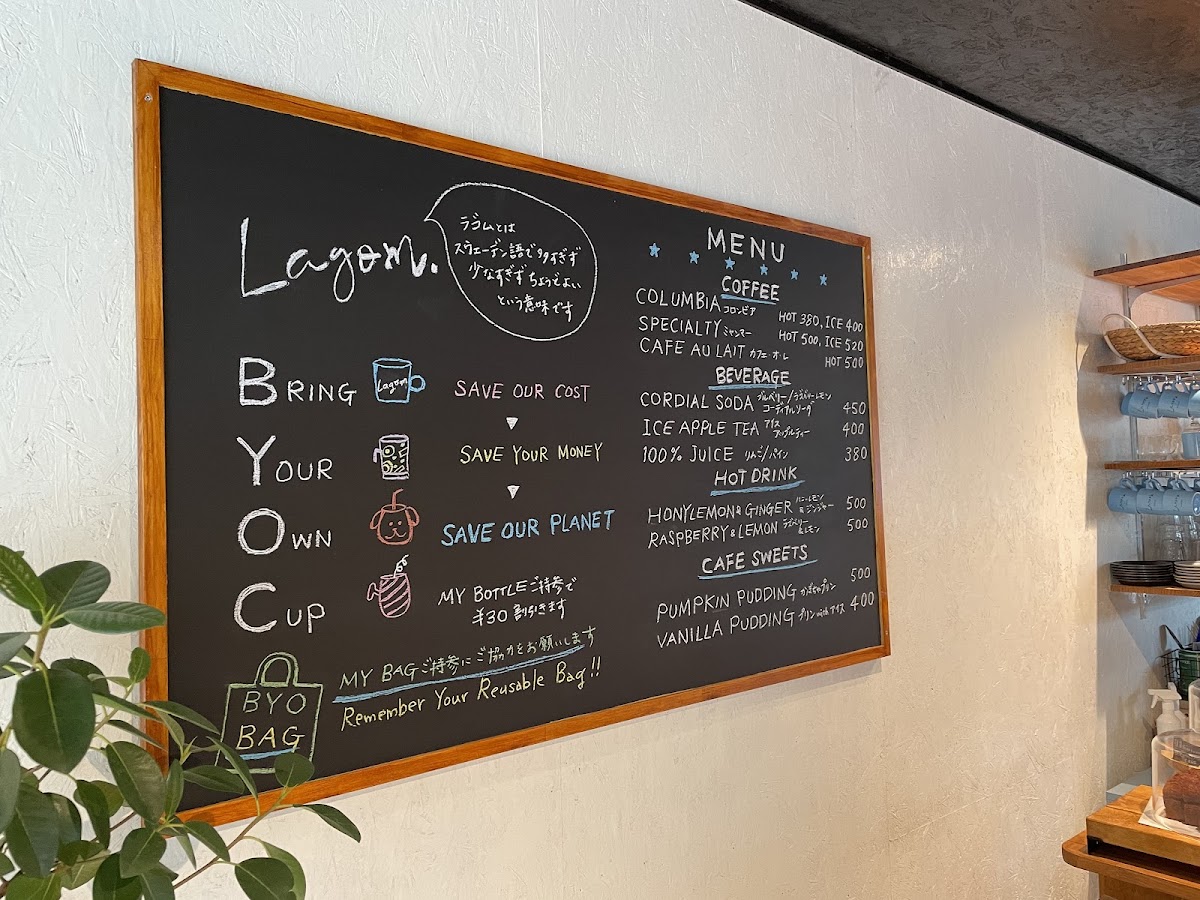 Lagom.
ラゴムとは
スウェーデン語で多すぎず
少なすぎず ちょうどよい
という意味です
BRING
Lagom
SAVE OUR COST
YOUR
SAVE YOUR MONEY
OWN
SAVE OUR PLANET
CUP
MY BOTTLEご持参で
¥30 割引きます
BYO
BAG
MY BAGご持参にご協力をお願いします
Remember Your Reusable Bag!!
MENU
COFFEE
COLUMBIA コロンビア HOT 380, ICE 400
SPECIALTY ミャンマー HOT 500, ICE 520
CAFE AU LAIT カフェ・オ・レ HOT 500
BEVERAGE
CORDIAL SODA ブルーベリー/ラズベリーレモン
コーディアルソーダ 450
ICE APPLE TEA アイス
アップルティー 400
100% JUICE りんご/パイン 380
HOT DRINK
HONYLEMON&GINGER ハニーレモン
&ジンジャー 500
RASPBERRY&LEMON ラズベリー
&レモン 500
CAFE SWEETS
PUMPKIN PUDDING かぼちゃプリン 500
VANILLA PUDDING プリン with アイス 400